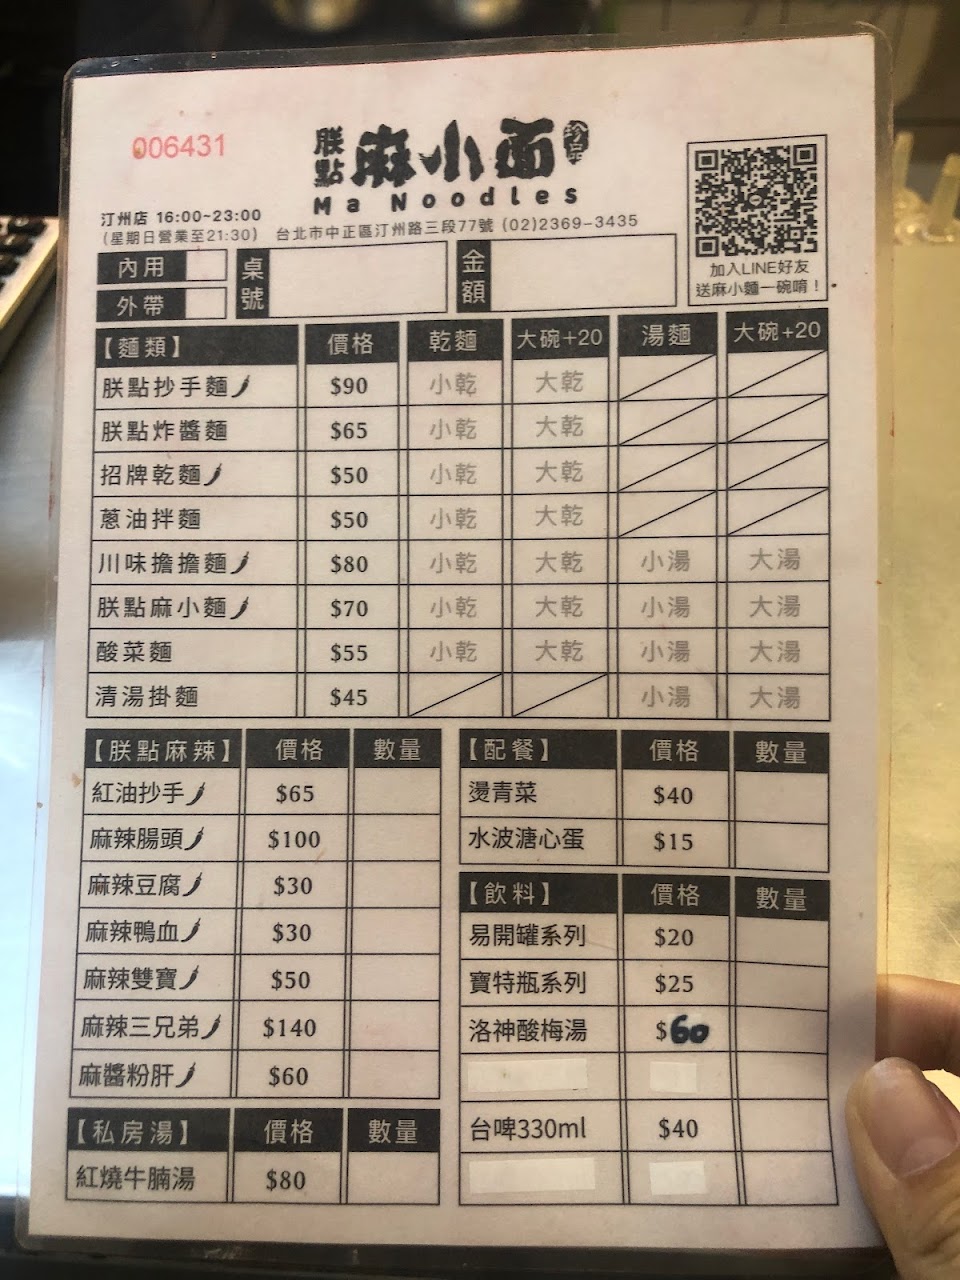 006431
朕點 麻小面 珍品
Ma Noodles
汀州店 16:00~23:00
(星期日營業至21:30) 台北市中正區汀州路三段77號 (02)2369-3435
加入LINE好友
送麻小麵一碗唷！
內用 桌號 金額
外帶
【麵類】 價格 乾麵 大碗+20 湯麵 大碗+20
朕點抄手麵 $90 小乾 大乾
朕點炸醬麵 $65 小乾 大乾
招牌乾麵 $50 小乾 大乾
蔥油拌麵 $50 小乾 大乾
川味擔擔麵 $80 小乾 大乾 小湯 大湯
朕點麻小麵 $70 小乾 大乾 小湯 大湯
酸菜麵 $55 小乾 大乾 小湯 大湯
清湯掛麵 $45 小湯 大湯
【朕點麻辣】 價格 數量
紅油抄手 $65
麻辣腸頭 $100
麻辣豆腐 $30
麻辣鴨血 $30
麻辣雙寶 $50
麻辣三兄弟 $140
麻醬粉肝 $60
【私房湯】 價格 數量
紅燒牛腩湯 $80
【配餐】 價格 數量
燙青菜 $40
水波溏心蛋 $15
【飲料】 價格 數量
易開罐系列 $20
寶特瓶系列 $25
洛神酸梅湯 $60
台啤330ml $40